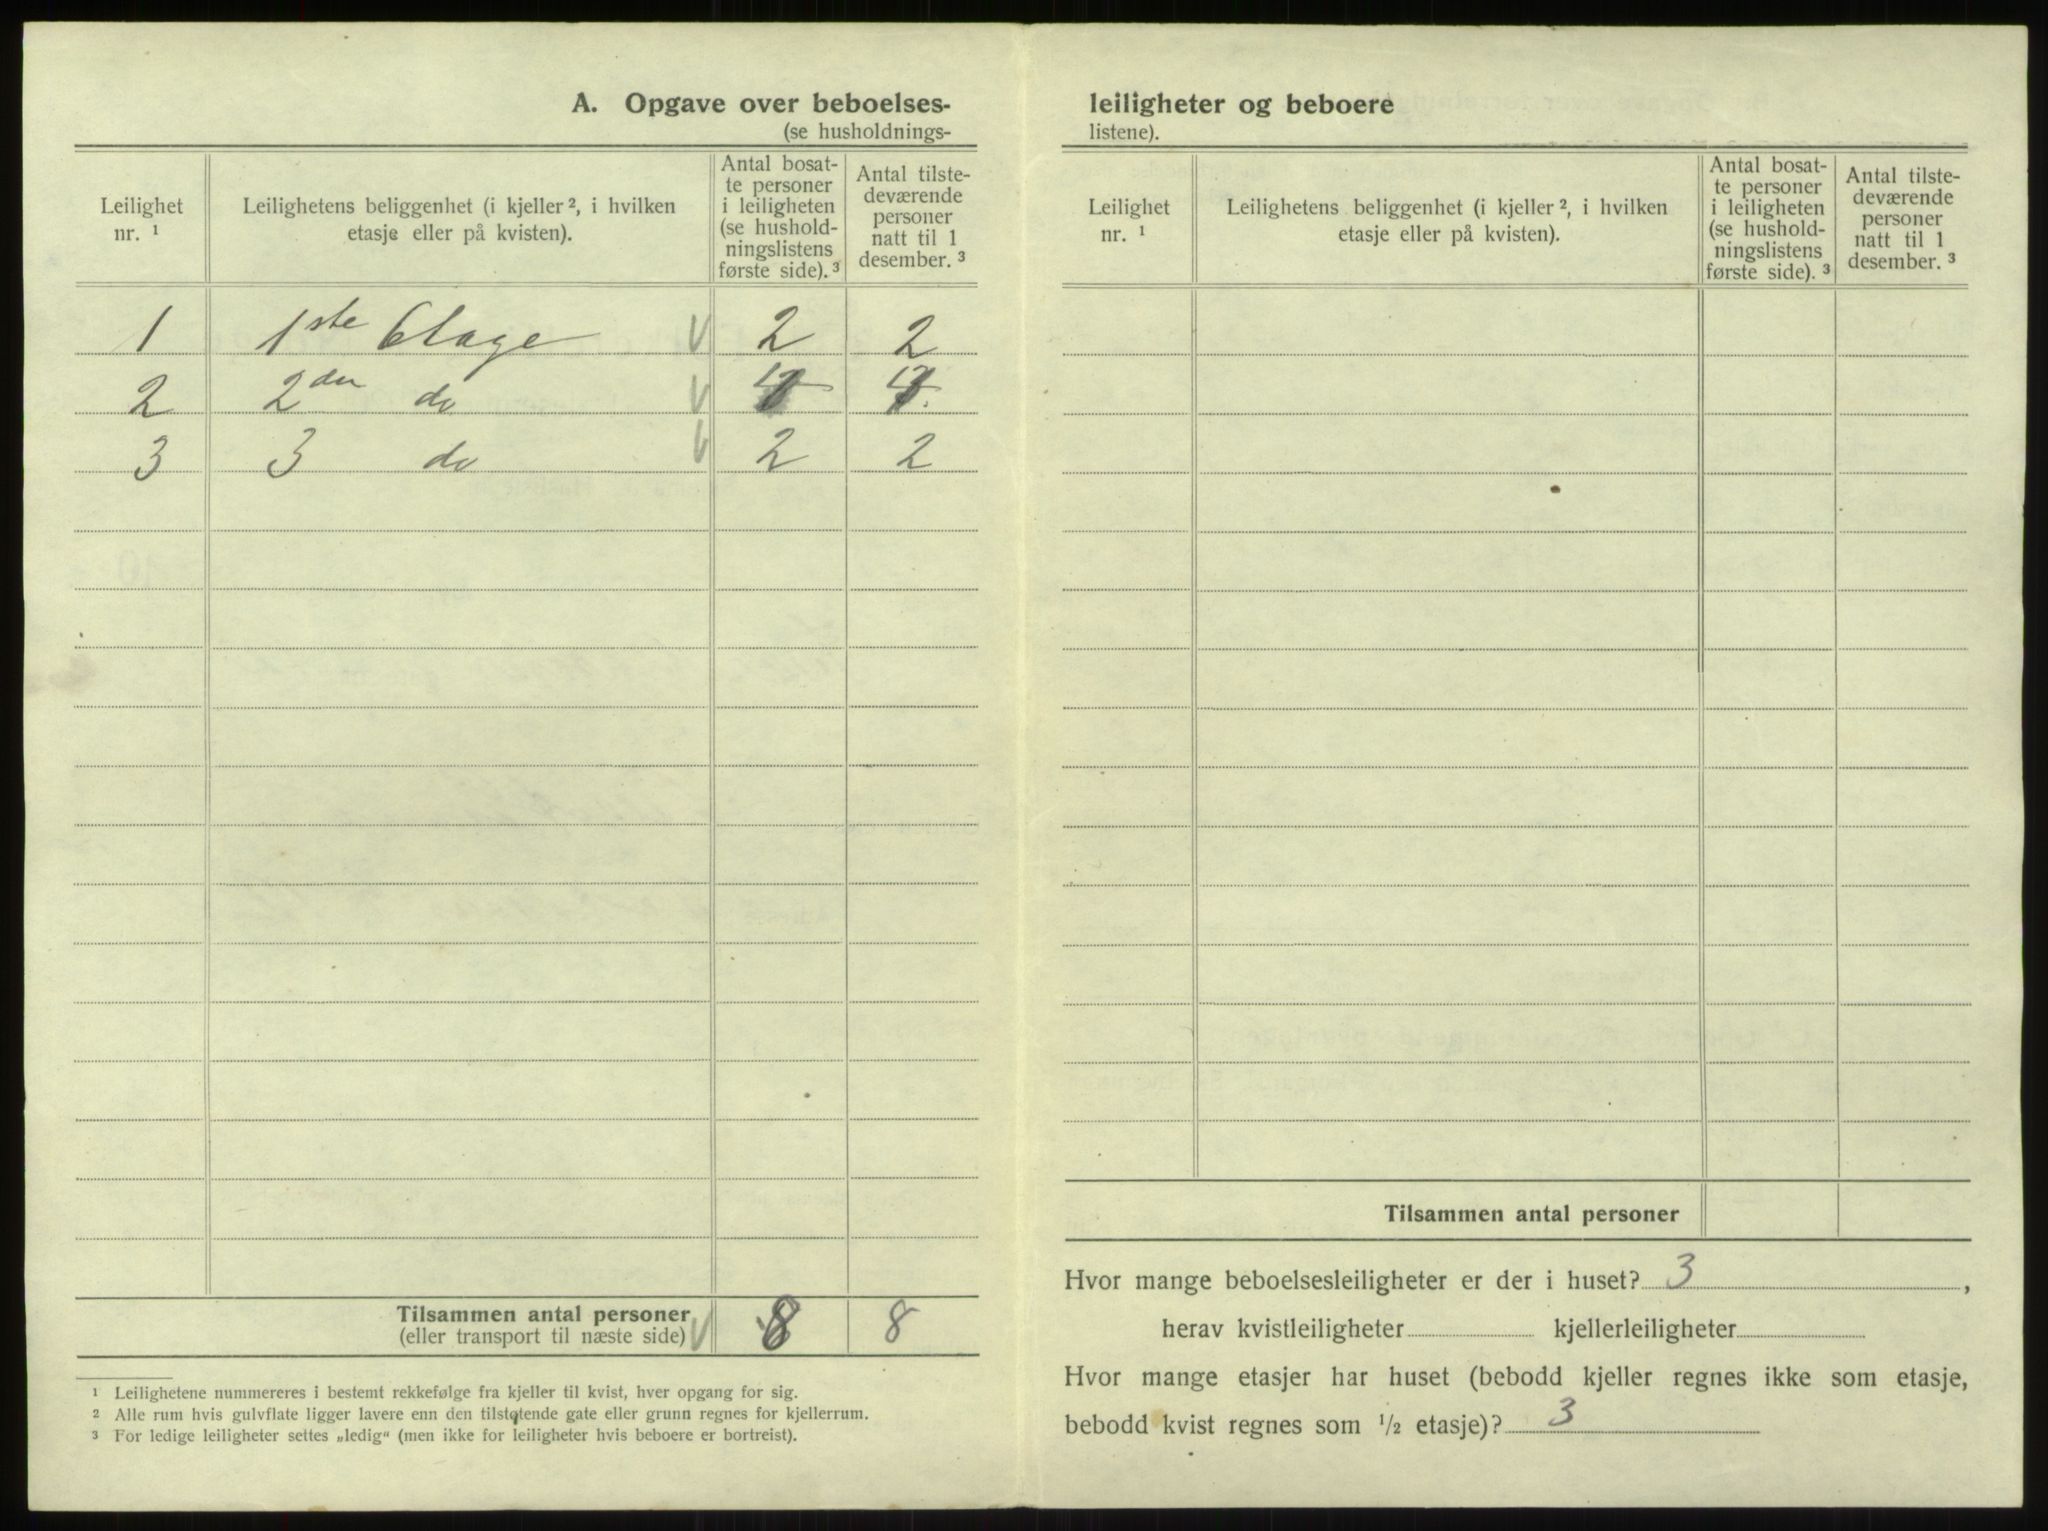 A. Opgave over beboelses-
(se husholdnings-
Leilighet nr. ¹
Leilighetens beliggenhet (i kjeller ², i hvilken etasje eller på kvisten).
Antal bosat-
te personer
i leiligheten
(se hushold-
ningslistens
første side). ³
Antal tilste-
deværende
personer
natt til 1
desember. ³
1 1ste Etage V 2 2
2 2den do V 4 4
3 3 do V 2 2
Tilsammen antal personer
(eller transport til næste side) V 8 8
¹ Leilighetene nummereres i bestemt rekkefølge fra kjeller til kvist, hver opgang for sig.
² Alle rum hvis gulvflate ligger lavere enn den tilstøtende gate eller grunn regnes for kjellerrum.
³ For ledige leiligheter settes „ledig“ (men ikke for leiligheter hvis beboere er bortreist).
leiligheter og beboere
listene).
Leilighet nr. ¹
Leilighetens beliggenhet (i kjeller ², i hvilken etasje eller på kvisten).
Antal bosat-
te personer
i leiligheten
(se hushold-
ningslistens
første side). ³
Antal tilste-
deværende
personer
natt til 1
desember. ³
Tilsammen antal personer
Hvor mange beboelsesleiligheter er der i huset? 3,
herav kvistleiligheter kjellerleiligheter
Hvor mange etasjer har huset (bebodd kjeller regnes ikke som etasje,
bebodd kvist regnes som ½ etasje)? 3